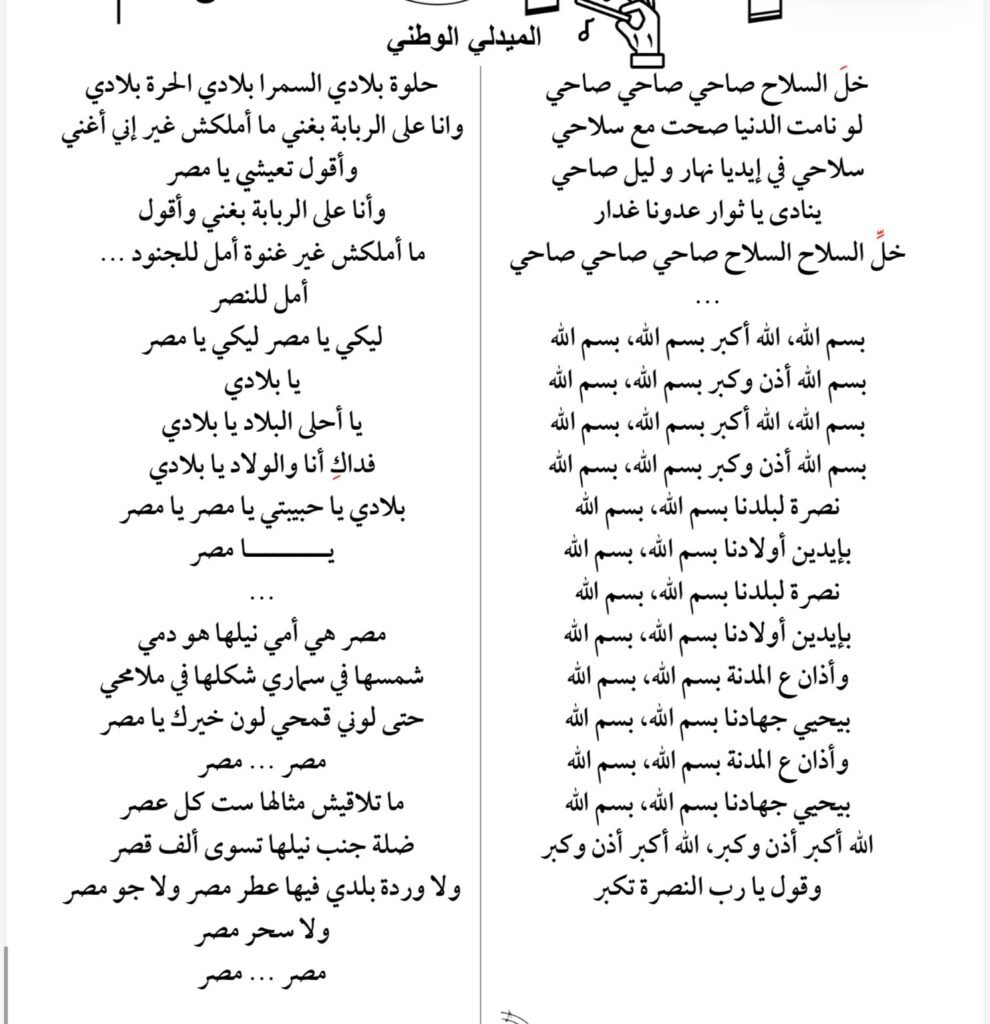 الميدلي الوطني
خلَ السلاح صاحي صاحي صاحي
لو نامت الدنيا صحت مع سلاحي
سلاحي في إيديا نهار و ليل صاحي
ينادى يا ثوار عدونا غدار
خلِّ السلاح السلاح صاحي صاحي صاحي
...
بسم الله، الله أكبر بسم الله، بسم الله
بسم الله أذن وكبر بسم الله، بسم الله
بسم الله، الله أكبر بسم الله، بسم الله
بسم الله أذن وكبر بسم الله، بسم الله
نصرة لبلدنا بسم الله، بسم الله
بإيدين أولادنا بسم الله، بسم الله
نصرة لبلدنا بسم الله، بسم الله
بإيدين أولادنا بسم الله، بسم الله
وأذان ع المدنة بسم الله، بسم الله
بيحيي جهادنا بسم الله، بسم الله
وأذان ع المدنة بسم الله، بسم الله
بيحيي جهادنا بسم الله، بسم الله
الله أكبر أذن وكبر، الله أكبر أذن وكبر
وقول يا رب النصرة تكبر
حلوة بلادي السمرا بلادي الحرة بلادي
وانا على الربابة بغني ما أملكش غير إني أغني
وأقول تعيشي يا مصر
وأنا على الربابة بغني وأقول
ما أملكش غير غنوة أمل للجنود ...
أمل للنصر
ليكي يا مصر ليكي يا مصر
يا بلادي
يا أحلى البلاد يا بلادي
فداكِ أنا والولاد يا بلادي
بلادي يا حبيبتي يا مصر يا مصر
يــــــــــا مصر
...
مصر هي أمي نيلها هو دمي
شمسها في سماري شكلها في ملامحي
حتى لوني قمحي لون خيرك يا مصر
مصر ... مصر
ما تلاقيش مثالها ست كل عصر
ضلة جنب نيلها تسوى ألف قصر
ولا وردة بلدي فيها عطر مصر ولا جو مصر
ولا سحر مصر
مصر ... مصر